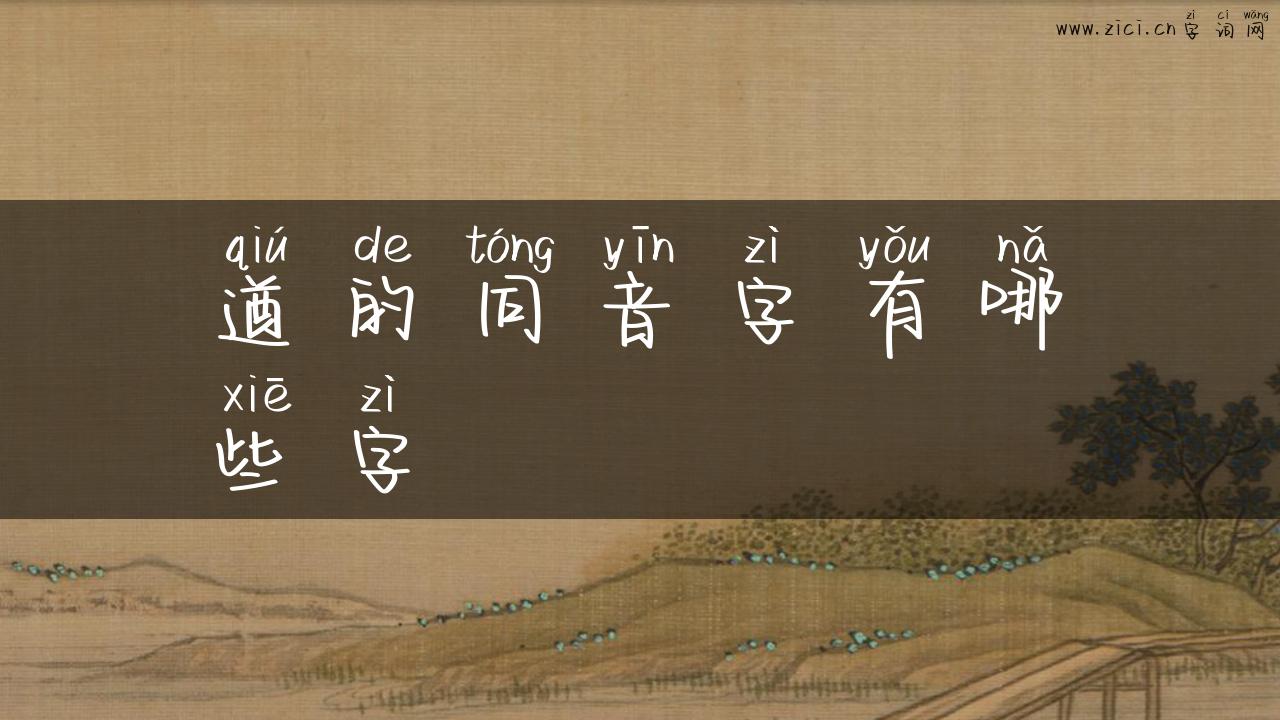 zì cí wǎng
www.zici.cn字词网
qiú de tóng yīn zì yǒu nǎ
遒的同音字有哪
xiē zì
些字